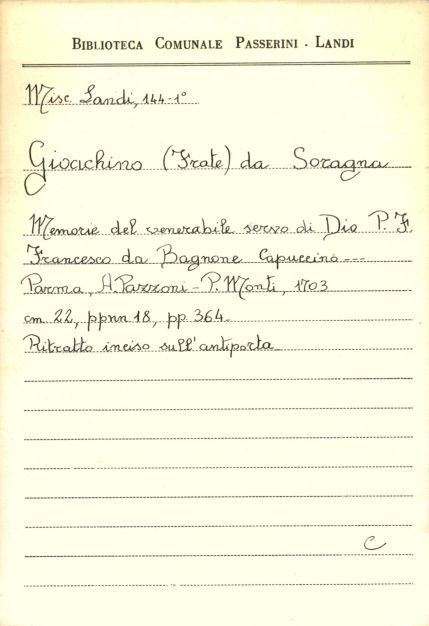 BIBLIOTECA COMUNALE PASSERINI - LANDI
Misc. Landi, 144-1°
Gioachino (Frate) da Soragna
Memorie del venerabile servo di Dio P. F.
Francesco da Bagnone Capuccino ---
Parma, A. Pazzoni - P. Monti, 1703
cm 22, ppnn 18, pp 364.
Ritratto inciso sull'antiporta
C